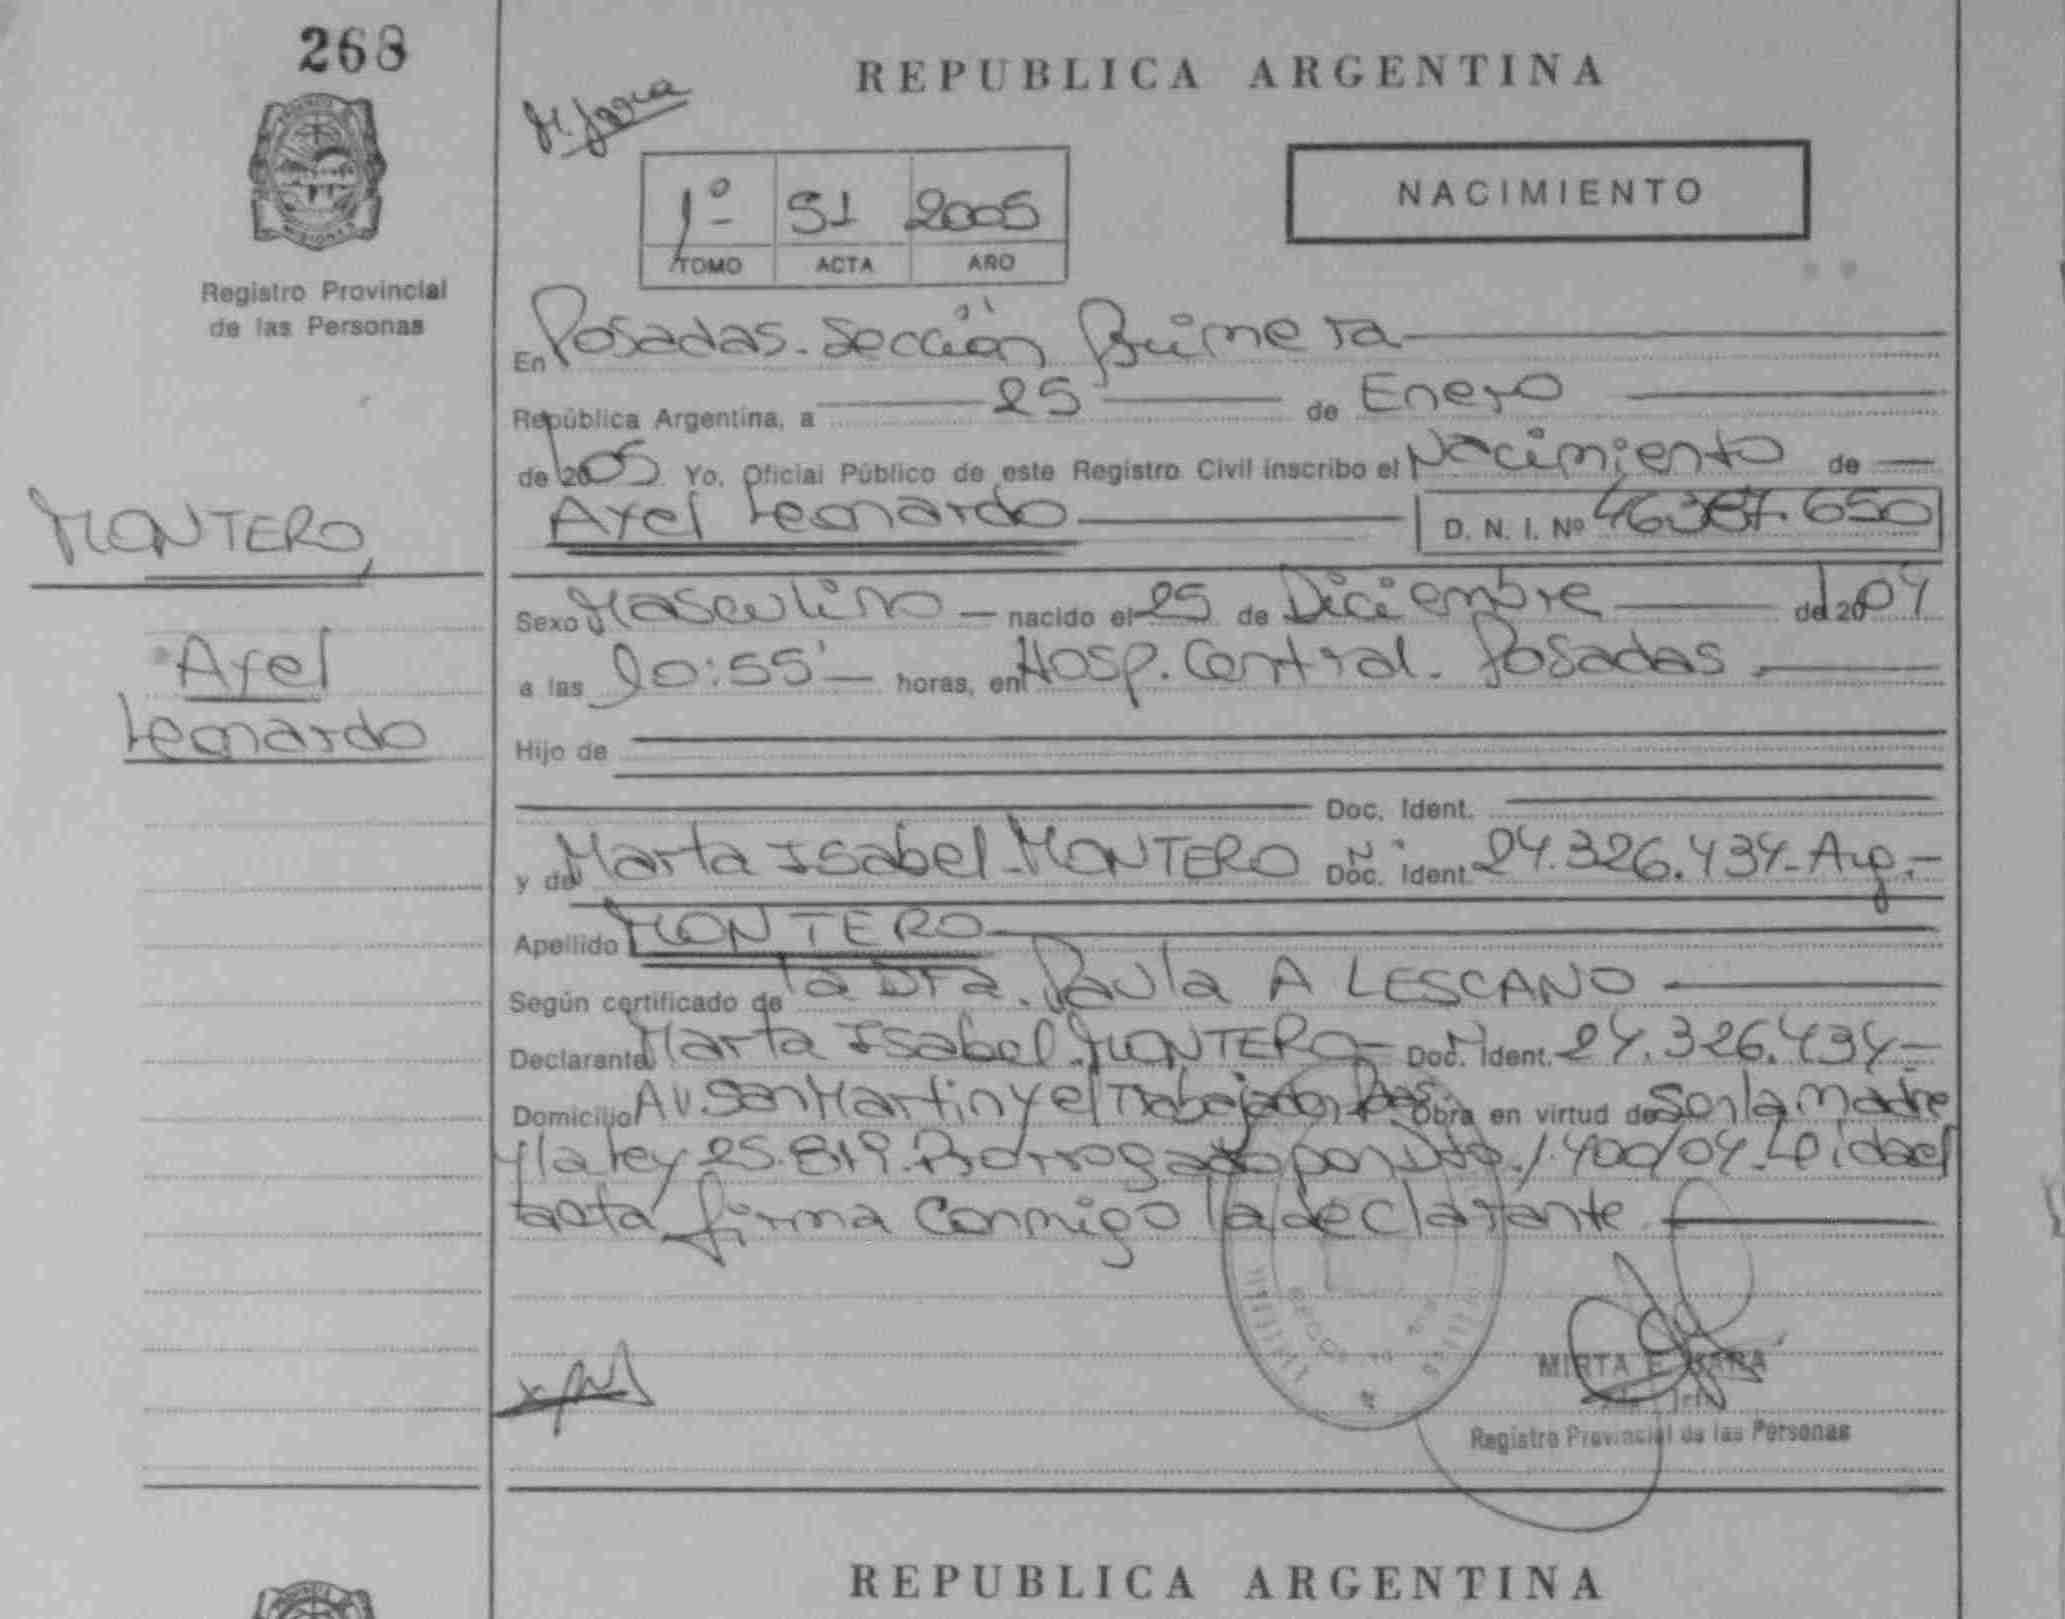 268
REPUBLICA ARGENTINA
1º 51 2005
TOMO ACTA AÑO
NACIMIENTO
Registro Provincial
de las Personas
En Posadas. Sección Primera
República Argentina, a 25 de Enero
de 2005 Yo, Oficial Público de este Registro Civil inscribo el Nacimiento de
Axel Leonardo D. N. I. Nº 46.387.650
MONTERO,
Axel
Leonardo
Sexo Masculino nacido el 25 de Diciembre de 2004
a las 10:55' horas, en Hosp. Central. Posadas
Hijo de
Doc. Ident.
y de Marta Isabel MONTERO Doc. Ident. Nº 24.326.434-Arg.-
Apellido MONTERO
Según certificado de la Dra. Paula A LESCANO
Declarante Marta Isabel MONTERO- Doc. Ident. Nº 24.326.434-
Domicilio Av. San Martin y el Trabajador Pdas Obra en virtud de Ser la madre
y la ley 25.819. Prorrogado por Dto. 1.400/04. Leida el
acta firma conmigo la declarante
MIRTA E.
Registro Provincial de las Personas
REPUBLICA ARGENTINA